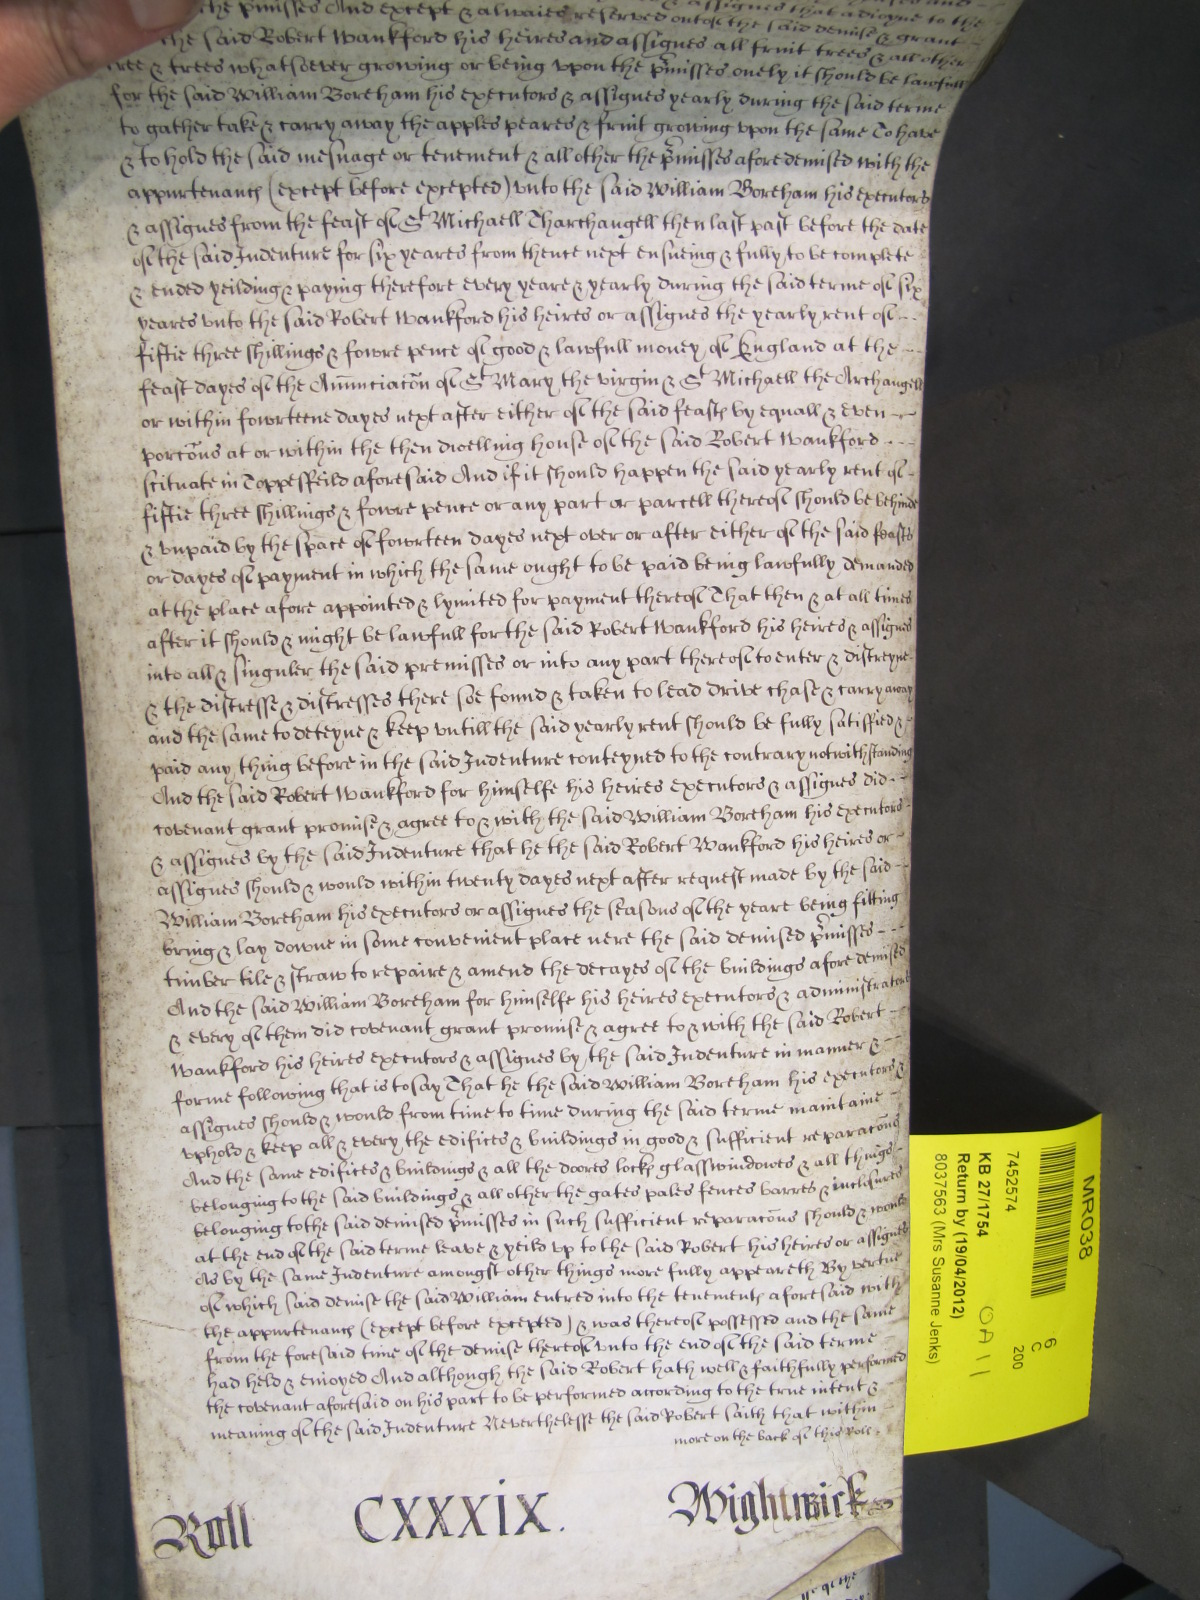 the p̃misses And except & alwaies reserved out of the said demise & grant
the said Robert Wankford his heires and assignes all fruit trees & all other
tree & trees whatsoever growing or being vpon the p̃misses onely it should be lawfull
for the said William Boreham his executors & assignes yearly during the said terme
to gather take & carry away the apples peares & fruit growing vpon the same To have
& to hold the said mesuage or tenement & all other the p̃misses afore demised with the
appurtenanc̨ (except before excepted) vnto the said William Boreham his executors
& assignes from the feast of St Michaell Tharchangell then last past before the date
of the said Indenture for six yeares from thence next ensueing & fully to be complete
& ended yeilding & paying therefore every yeare & yearly during the said terme of six
yeares vnto the said Robert Wankford his heires or assignes the yearly rent of
fiftie three shillings & fowre pence of good & lawfull money of England at the
feast dayes of the Annunciac̃on of St Mary the virgin & St Michaell the Archangell
or within fowrteene dayes next after either of the said feasts by equall & even
porc̃ons at or within the then dwelling house of the said Robert Wankford
scituate in Toppesfeild aforesaid And if it should happen the said yearly rent of
fiftie three shillings & fowre pence or any part or parcell thereof should be behinde
& vnpaid by the space of fowrteen dayes next over or after either of the said feasts
or dayes of payment in which the same ought to be paid being lawfully demanded
at the place afore appointed & lymited for payment thereof That then & at all times
after it should & might be lawfull for the said Robert Wankford his heires & assignes
into all & singuler the said premisses or into any part thereof to enter & distreyne
& the distresse & distresses there soe found & taken to lead drive chase & carry away
and the same to deteyne & keep vntill the said yearly rent should be fully satisfied &
paid any thing before in the said Indenture conteyned to the contrary notwithstanding
And the said Robert Wankford for himselfe his heires executors & assignes did
covenant grant promise & agree to & with the said William Boreham his executors
& assignes by the said Indenture that he the said Robert Wankford his heires or
assignes should & would within twenty dayes next after request made by the said
William Boreham his executors or assignes the seasons of the yeare being fitting
bring & lay downe in some convenient place nere the said demised p̃misses
timber tile & straw to repaire & amend the decayes of the buildings afore demised
And the said William Boreham for himselfe his heires executors & administrators
& every of them did covenant grant promise & agree to & with the said Robert
Wankford his heires executors & assignes by the said Indenture in manner &
forme following that is to say That he the said William Boreham his executors &
assignes should & would from time to time during the said terme maintaine
vphold & keep all & every the edifices & buildings in good & sufficient reparac̃ons
And the same edifices & buildings & all the doores locks glasswindowes & all things
belonging to the said buildings & all other the gates pales fences barres & inclosures
belonging to the said demised p̃misses in such sufficient reparac̃ons should & would
at the end of the said terme leave & yeild vp to the said Robert his heires or assignes
As by the same Indenture amongst other things more fully appeareth By vertue
of which said demise the said William entred into the tenements aforesaid with
the appurtenanc̨ (except before excepted) & was thereof possessed and the same
from the foresaid time of the demise thereof vnto the end of the said terme
had held & enioyed And although the said Robert hath well & faithfully performed
the covenant aforesaid on his part to be performed according to the true intent &
meaning of the said Indenture Neverthelesse the said Robert saith that within
more on the back of this Roll.
Roll CXXXIX. Wightwick
MR038
6
C
200
7452574
KB 27/1754
OA11
Return by (19/04/2012)
8037563 (Mrs Susanne Jenks)